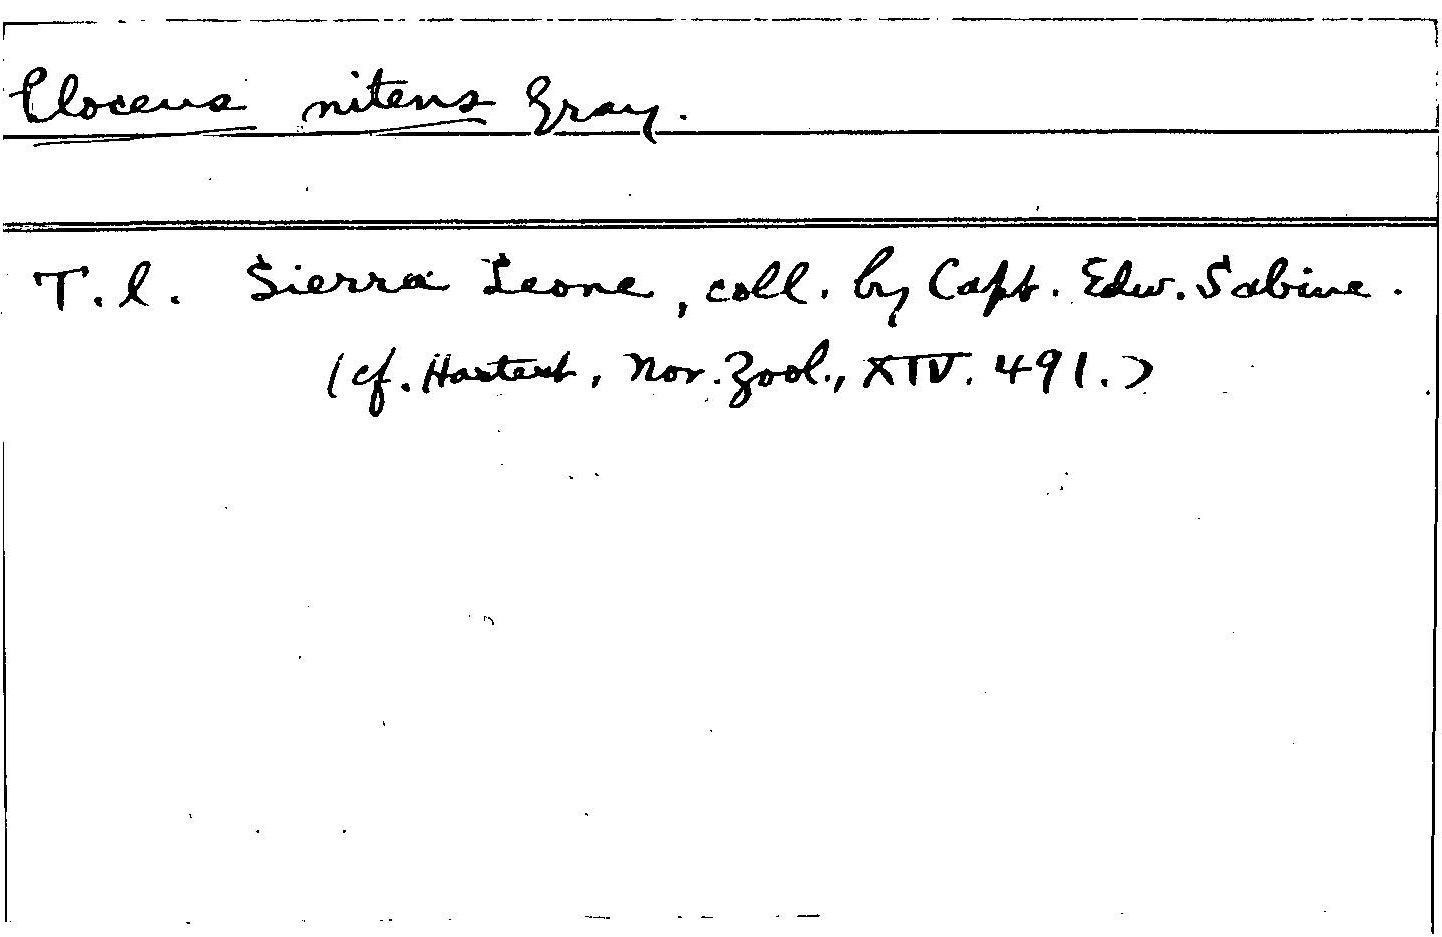 Ploceus nitens Gray.
T.l. Sierra Leone, coll. by Capt. Edw. Sabine.
(cf. Hartert, Nov. Zool., XIV. 491.)